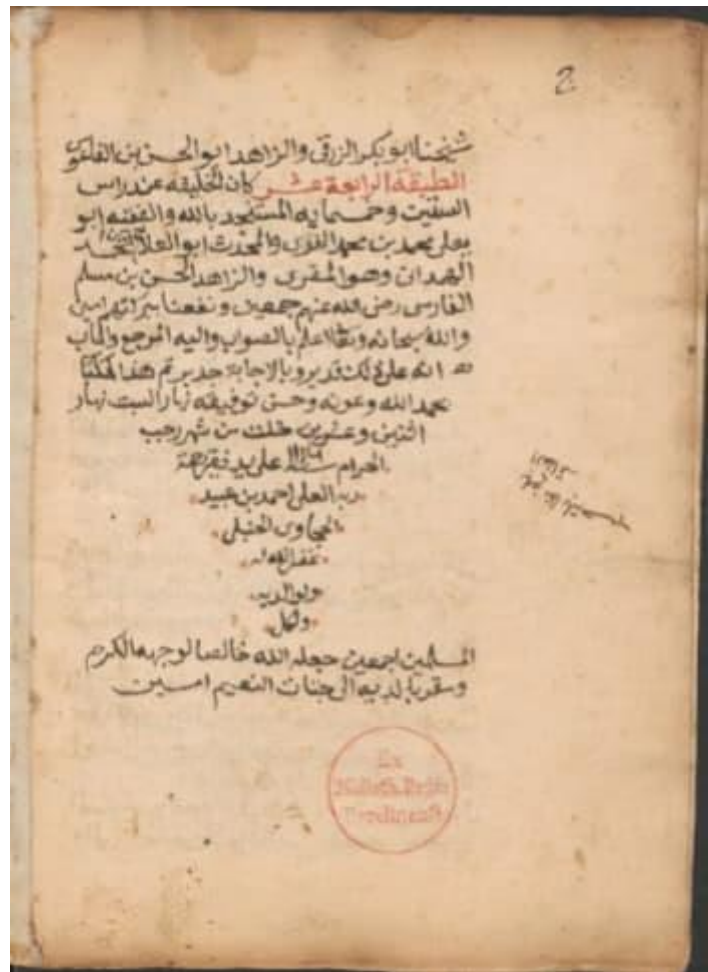 شيخنا ابو بكر الزرقي والزاهد ابو الحسن بن
الطبقة الرابعة عشر كان الخليفة عند راس
الستين وخمسمايه المستنجد بالله والفقيه ابو
يعلى محمد بن محمد والمحدث ابو العلا
الهمدان وهو المقرى والزاهد الحسن بن مسلم
الفارسى رضى الله عنهم جمعين ونفعنا امين
والله سبحانه وتعالى اعلم بالصواب واليه المرجع والماب
انه على ذلك قدير وبالاجابة جدير تم هذا
بحمد الله وعونه وحسن توفيقه نهار السبت نهار
اثنين وعشرين خلت من شهر رجب
الحرام سنة على يد فقير رحمة
ربه العلى احمد بن عبيد
الحنبلى
غفر الله له
ولوالديه
ولكل
المسلمين اجمعين جعله الله خالصا لوجهه الكريم
ومقربا لديه الى جنات النعيم امين
Ex
Biblioth. Regia
Berolinensi